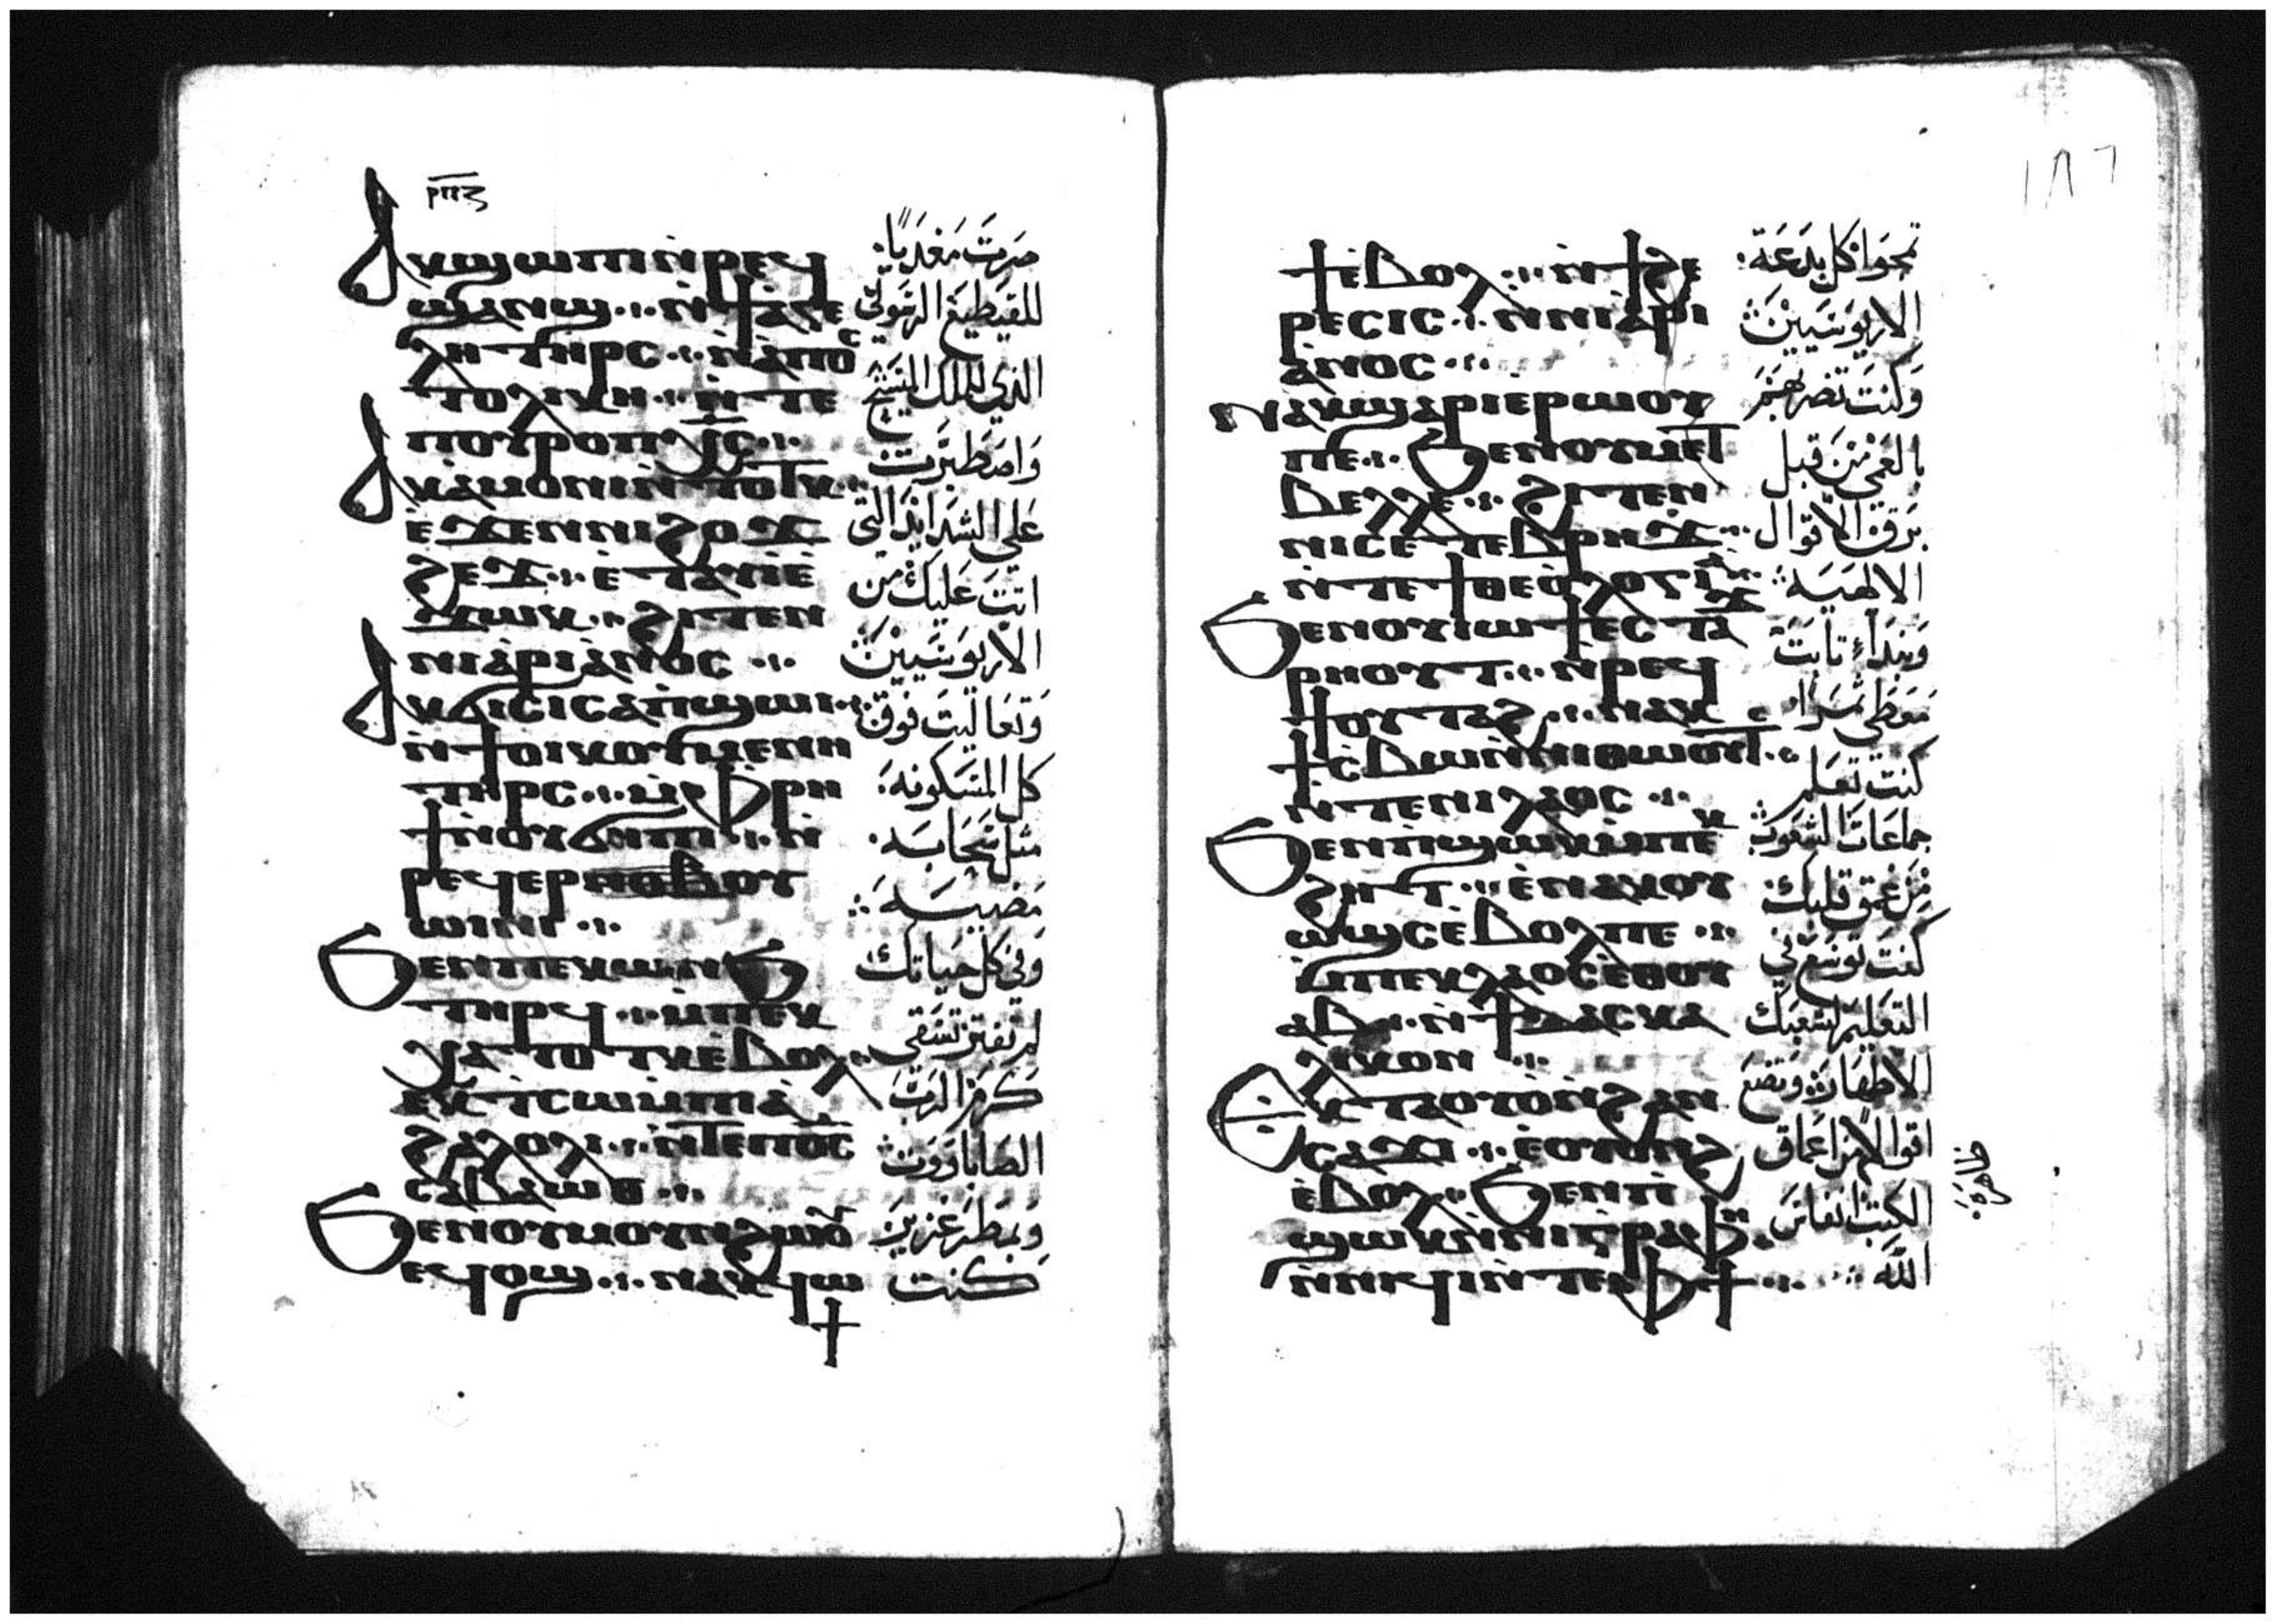 ⲣⲡⲍ
ⲁⲕϣⲱⲡⲓ ⲛ̀ⲣⲉϥ
ϣⲁⲛϣ ⲛ̀ϯⲁⲅⲉ
ⲗⲏ ⲧⲏⲣⲥ ⲛ̀ⲁⲡⲟⲥ
ⲧⲟⲗⲓⲕⲏ ⲛ̀ⲧⲉ
ⲡⲟⲩⲣⲟ ⲡⲭⲥ
ⲁⲕⲁⲙⲟⲛⲓ ⲛ̀ⲧⲟⲧⲕ
ⲉ̀ϫⲉⲛ ⲛⲓϩⲟϫ
ϩⲉϫ ⲉ̀ⲧⲁⲩⲓ̀ ⲉ̀
ϫⲱⲕ ϩⲓⲧⲉⲛ
ⲛⲓⲁⲣⲓⲁⲛⲟⲥ
ⲁⲕϭⲓⲥⲓ ⲥⲁⲡ̀ϣⲱⲓ
ⲛ̀ϯⲟⲓⲕⲟⲩⲙⲉⲛⲏ
ⲧⲏⲣⲥ ⲙ̀ⲫⲣⲏ
ϯ ⲛⲟⲩϭⲏⲡⲓ ⲛ̀
ⲣⲉϥⲉⲣ ⲟⲩ
ⲱⲓⲛⲓ
ϧⲉⲛ ⲡⲉⲕⲱⲛϧ
ⲧⲏⲣϥ ⲙ̀ⲡⲉⲕ
ⲭⲁ ⲧⲟⲧⲕ ⲉ̀ⲃⲟⲗ
ⲉⲕⲧⲥⲱ ⲙ̀ⲡⲓⲁ̀
ϩⲁⲗⲟⲗⲓ ⲛ̀ⲧⲉ ⲡϭⲥ
ⲥⲁⲃⲁⲱⲑ
ϧⲉⲛ ⲟⲩⲙⲟⲩⲛϩⲱⲟⲩ
ⲉϥⲟϣ ⲛⲁⲕϥⲱ
ϯ
صرت مغديا
للقطيع الرسولي
الذي للملك المسيح
واصطبرت
على الشدايد التي
اتت عليك من
الاريوسيين
وتعاليت فوق
كل المسكونه
مثل سحابه
مضييه
وفي كل حياتك
لم تفتر تسقي
كرم الرب
الصاباووت
وبمطر غزير
كنت
١٨٦
ϯ ⲉ̀ⲃⲟⲗ ⲛ̀ϯϩⲉ
ⲣⲉⲥⲓⲥ ⲛ̀ⲛⲓⲁⲣⲓ
ⲁⲛⲟⲥ
ⲛⲁⲕϣⲁⲣⲓ ⲉⲣⲱⲟⲩ
ⲡⲉ ϧⲉⲛ ⲟⲩⲙⲉⲧ
ⲃⲉⲗⲗⲉ ϩⲓⲧⲉⲛ
ⲛⲓⲥⲉⲧⲉⲃⲣⲏϫ
ⲛ̀ⲧⲉ ϯⲑⲉⲟⲗⲟⲅⲓⲁ
ϧⲉⲛ ⲟⲩⲓⲱϯ ⲉⲥⲧⲁϫ
ⲣⲏⲟⲩⲧ ⲛ̀ⲣⲉϥ
ϯⲟⲩⲧⲁϩ ⲛⲁⲕ
ϯⲥⲃⲱ ⲛ̀ⲛⲓⲑⲱⲟⲩϯ
ⲛ̀ⲧⲉ ⲛⲓⲗⲁⲟⲥ
ϧⲉⲛ ⲡ̀ϣⲱⲕ ⲙ̀ⲡⲉⲕ
ϩⲏⲧ ⲉ̀ⲛⲁⲕⲟⲩ
ⲱϣⲥ ⲉ̀ⲃⲟⲗ ⲡⲉ
ⲙ̀ⲡⲉⲕⲗⲁⲟⲥ ⲉⲑⲟⲩ
ⲁⲃ ⲛ̀ϯⲇⲓⲇⲁⲥⲕⲁ
ⲗⲓⲕⲟⲛ
ⲉⲕⲧⲁⲟⲩⲟ ⲛ̀ϩⲁⲛ
ⲥⲁϫⲓ ⲉⲟⲩⲟⲛϩ
ⲉ̀ⲃⲟⲗ ϧⲉⲛ ⲡ̀
ϣⲱⲕ ⲛ̀ⲛⲓⲅⲣⲁⲫⲏ
ⲛ̀ⲛⲓϥⲓ ⲛ̀ⲧⲉ ⲫϯ
تمحوا كل بدعة
الاريوسيين
وكنت تضربهم
بالعمى من قبل
برق الاقوال
الالهيه
وبنداء ثابت
معطي ثمرا
كنت تعلم
جماعات الشعوب
من عمق قلبك
كنت توسع في
التعليم لشعبك
الاطهار وتضع
اقوالا من اعماق
ظاهره
الكتب انفاس
الله